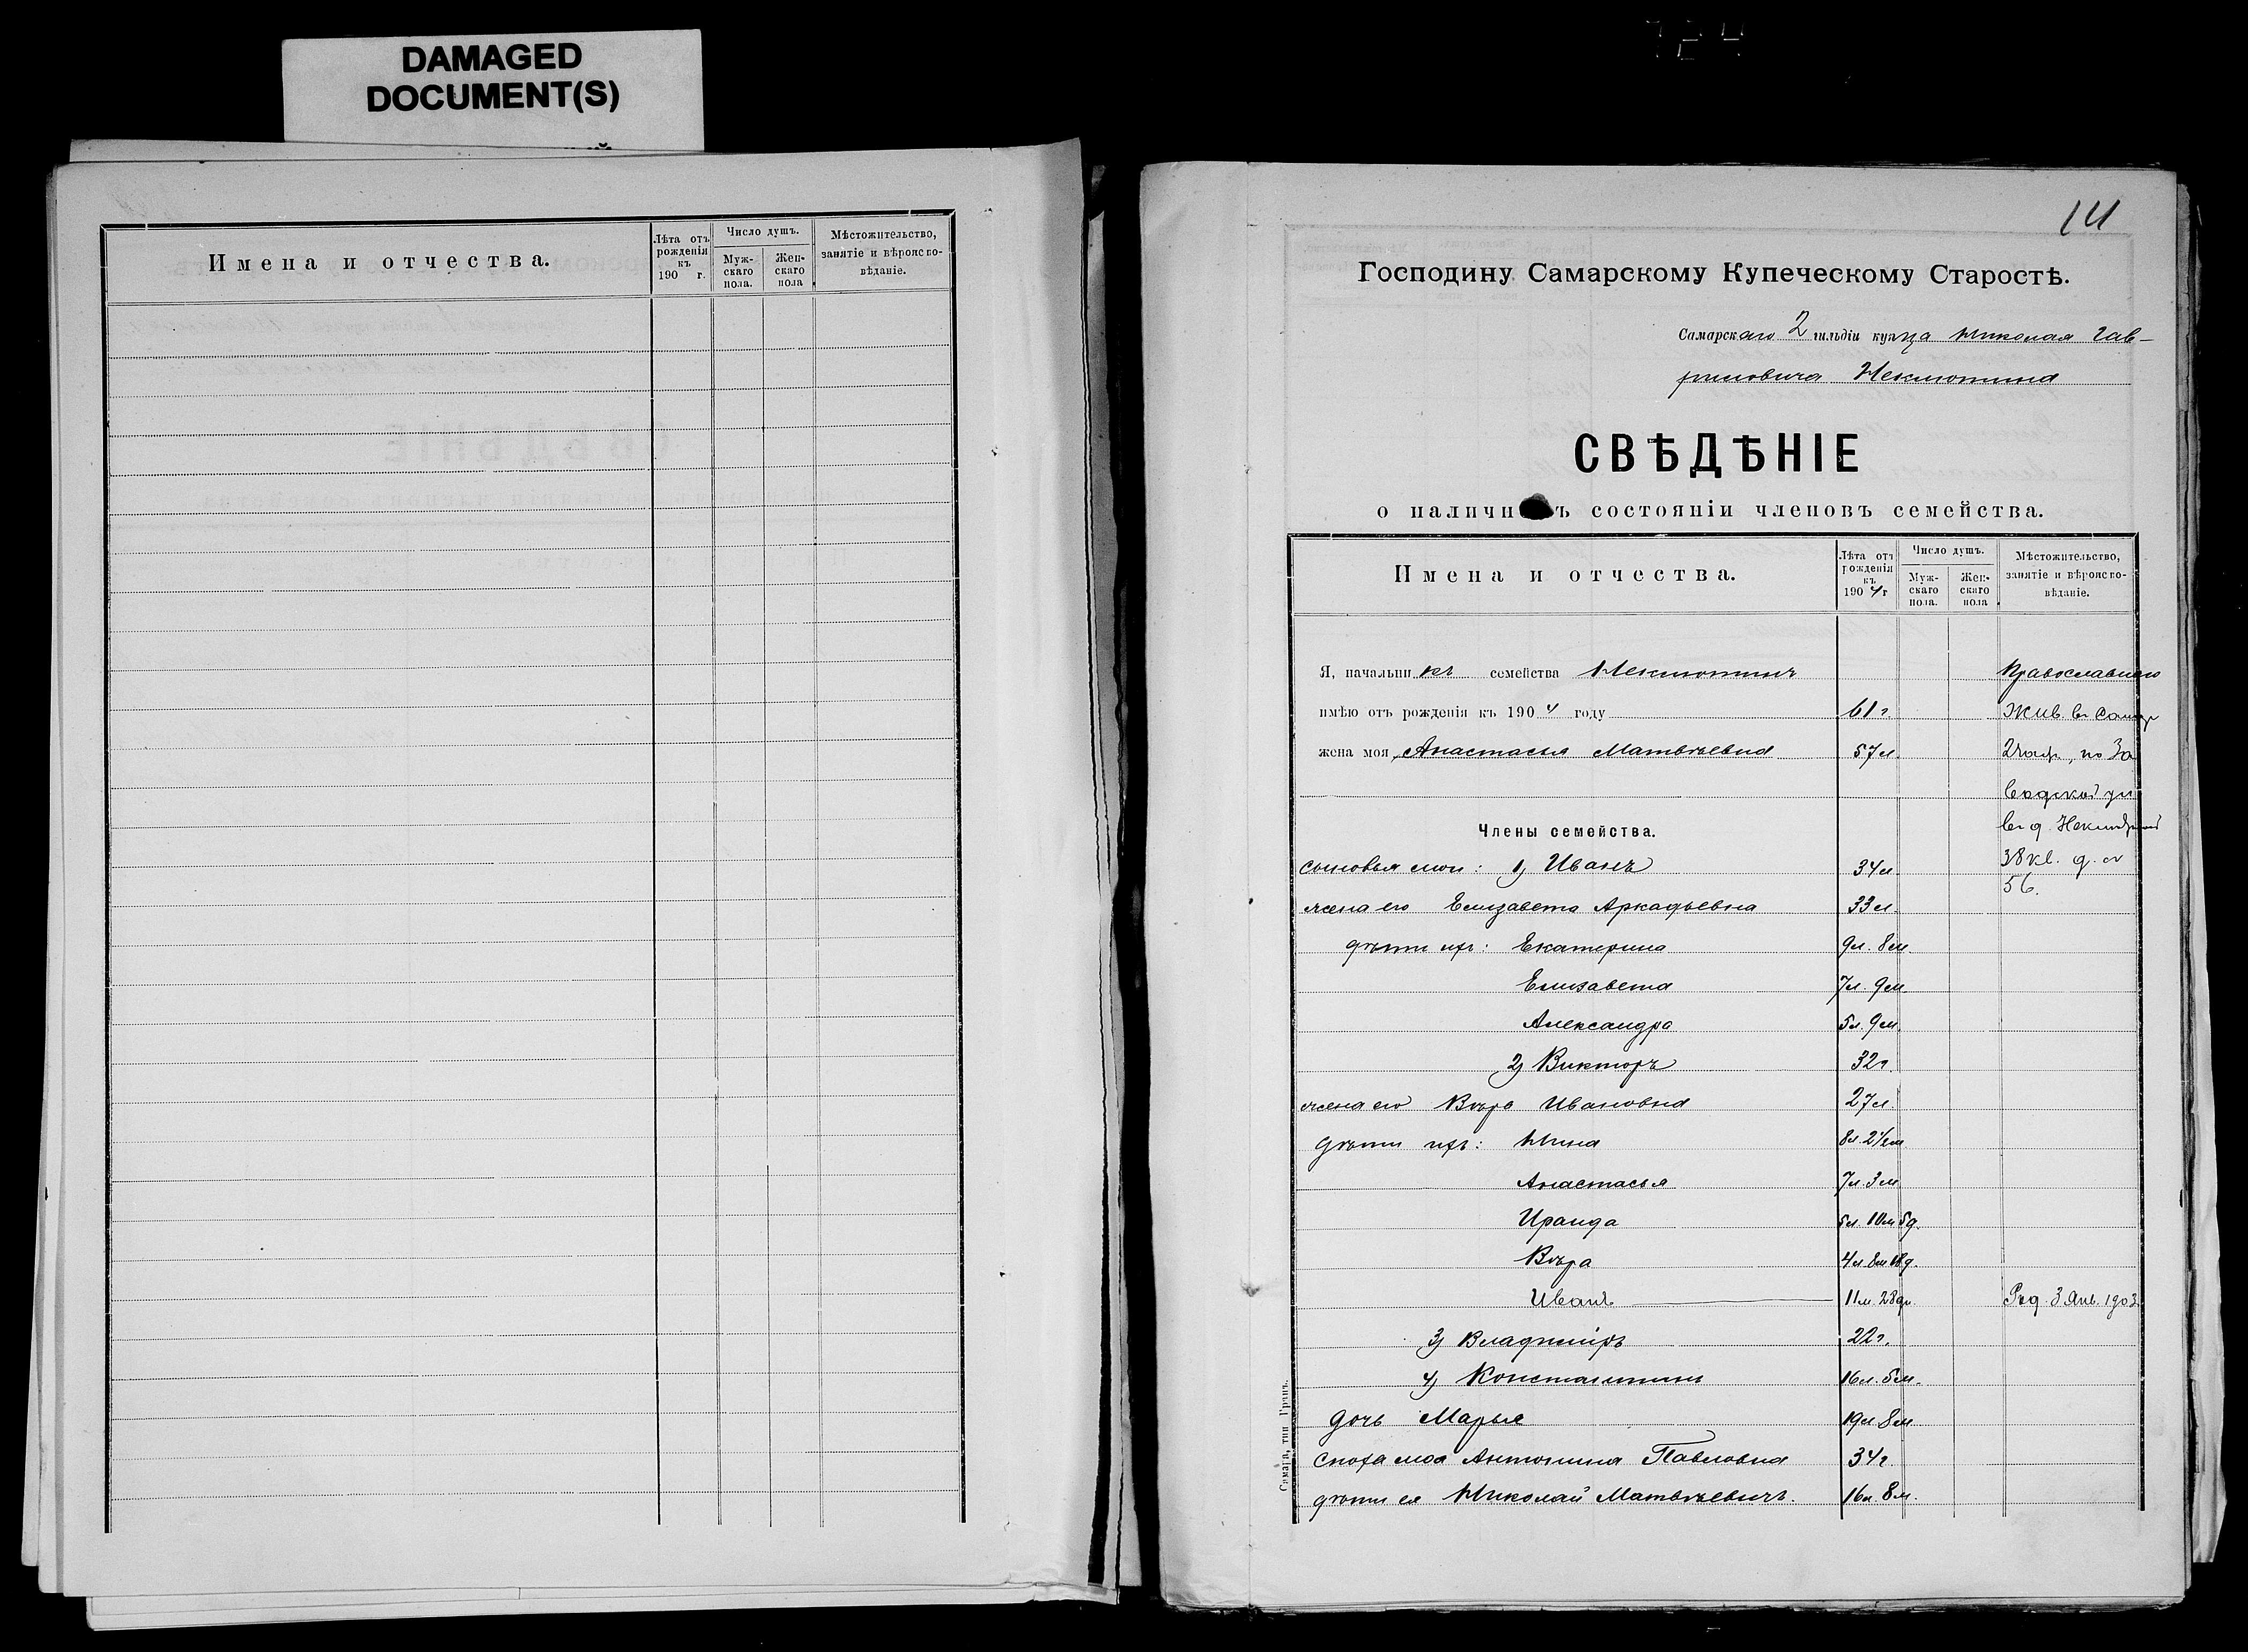 DAMAGED
DOCUMENT(S)
Имена и отчества.
Лѣта отъ рожденія къ 190 г.
Число душъ.
Мужскаго пола.
Женскаго пола
Мѣстожительство, занятіе и вѣроисповѣданіе.
141
Господину Самарскому Купеческому Старостѣ.
Самарскаго 2 гильдіи купца Николая Гав-
риловича Неклютина
СВѢДѢНІЕ
о наличн ъ состояніи членовъ семейства.
Имена и отчества.
Лѣта отъ рожденія къ 1904 г
Число душъ.
Мужскаго пола.
Женскаго пола
Мѣстожительство, занятіе и вѣроисповѣданіе.
Я, начальникъ семейства Неклютинъ Православнаго
имѣю отъ рожденія къ 1904 году 61 г Жив. въ Самар
жена моя Анастасья Матвѣевна 57 л. 2 част, по За
водской ул
Члены семейства. въ д. Неклютиной
сыновья мои: 1) Иванъ 34 л. 38 кв. д. №
56.
жена его Елизавета Аркадьевна 33 л.
дѣти ихъ: Екатерина 9 л. 8 м.
Елизавета 7 л. 9 м.
Александра 5 л. 9 м.
2) Викторъ 32 г.
жена его Вѣра Ивановна 27 л.
дѣти ихъ: Нина 8 л. 2½ м
Анастасья 7 л. 3 м
Ираида 5 л. 10 м 5 д.
Вѣра 4 л. 8 м 18 д.
Иванъ 11 м. 28 дн. Род. 3 Янв. 1903
3) Владиміръ 22 г.
4) Константинъ 16 л. 5 м.
дочь Марья 19 л. 8 м
сноха моя Антонина Павловна 34 г.
дѣти ея Николай Матвѣевичъ. 16 л. 8 м.
Самара, тип. Гранъ.